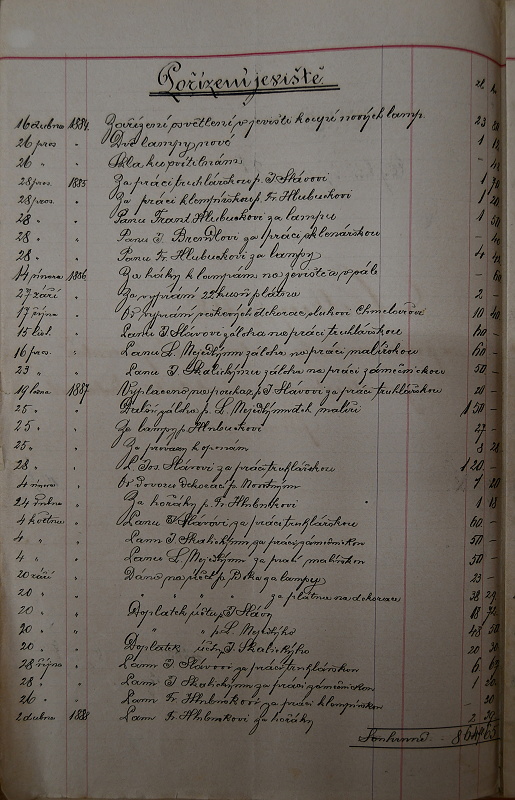 Pořízení jeviště
zl. k.
16 dubna 1884. Zařízení osvětlení v jevišti koupí nových lamp 23
26 pros " Dvě lampy nové 1
26 " " Skla ku světlnám
28 pros. 1885 Za práci truhlářskou p. J. Slávovi 1
28 pros. " Za práci klempířskou p. Fr. Hlubuckovi 1 20
28 " " Panu Frant Hlubuckovi za lampu 1 50
28 " " Panu J. Brondlovi za práci sklenářskou - 40
28 " " Panu Fr. Hlubuckovi za lampy 4
14 února 1886 Za háky k lampám na jeviště a v sále - 60
27 září " Za vyprání 22 kusů plátna 2 -
17 října " Od vyprání pískových dekorac sluhovi Chmelařovi 10 40
15 list. " Panu J. Slávovi záloha na práci truhlářskou 60 -
16 pros. " Panu L. Nejedlýmu záloha na práci malířskou 60 -
23 " " Panu J. Skalickýmu záloha na práci zámečnickou 50 -
19 1887 Vyplaceno na poukaz p. J. Slávovi za práci truhlářskou 20 -
25 " " Další záloha p. L. Nejedlýmu malíři 150 -
25 " " Za lampy p. Hlubuckovi 27 -
25 " " Za provazy k oponám 8 28
28 " " P. Jos. Slávovi za práci truhlářskou 120 -
4 " Od dovozu dekorací p. Novotným 7 20
24 " Za hořáky p. Fr. Hlubuckovi 1 18
4 května " Panu J. Slávovi za práci truhlářskou 60 -
4 " " Panu J. Skalickýmu za práci zámečnickou 50 -
4 " " Panu L. Nejedlýmu za práci malířskou 50 -
20 září " Dáno na účet p. za lampy 23 -
20 " " " " " za plátno na dekorace 38 29
20 " " Doplatek účtu p. J. Slávy 18
20 " " " " p. L. Nejedlýho 48 50
20 " " Doplatek účtu J. Skalickýho 20 30
28 října " Panu J. Slávovi za práci truhlářskou 6
28 " " Panu J. Skalickýmu za práci zámečnickou 1 30
26 " " Panu Fr. Hlubuckovi za práci klempířskou - 30
2 dubna 1888 Panu Fr. Hlubuckovi za hořáky 2
Souhrnně